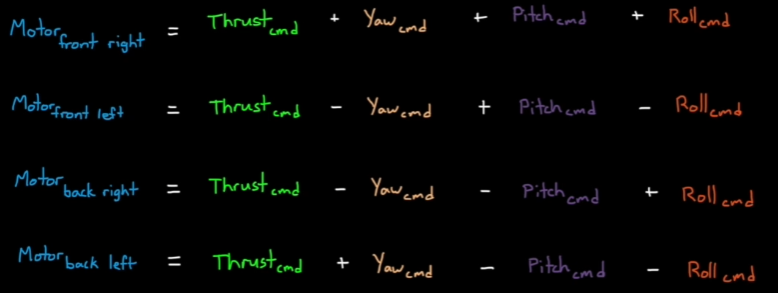 Motor front right = Thrust cmd + Yaw cmd + Pitch cmd + Roll cmd
Motor front left = Thrust cmd - Yaw cmd + Pitch cmd - Roll cmd
Motor back right = Thrust cmd - Yaw cmd - Pitch cmd + Roll cmd
Motor back left = Thrust cmd + Yaw cmd - Pitch cmd - Roll cmd